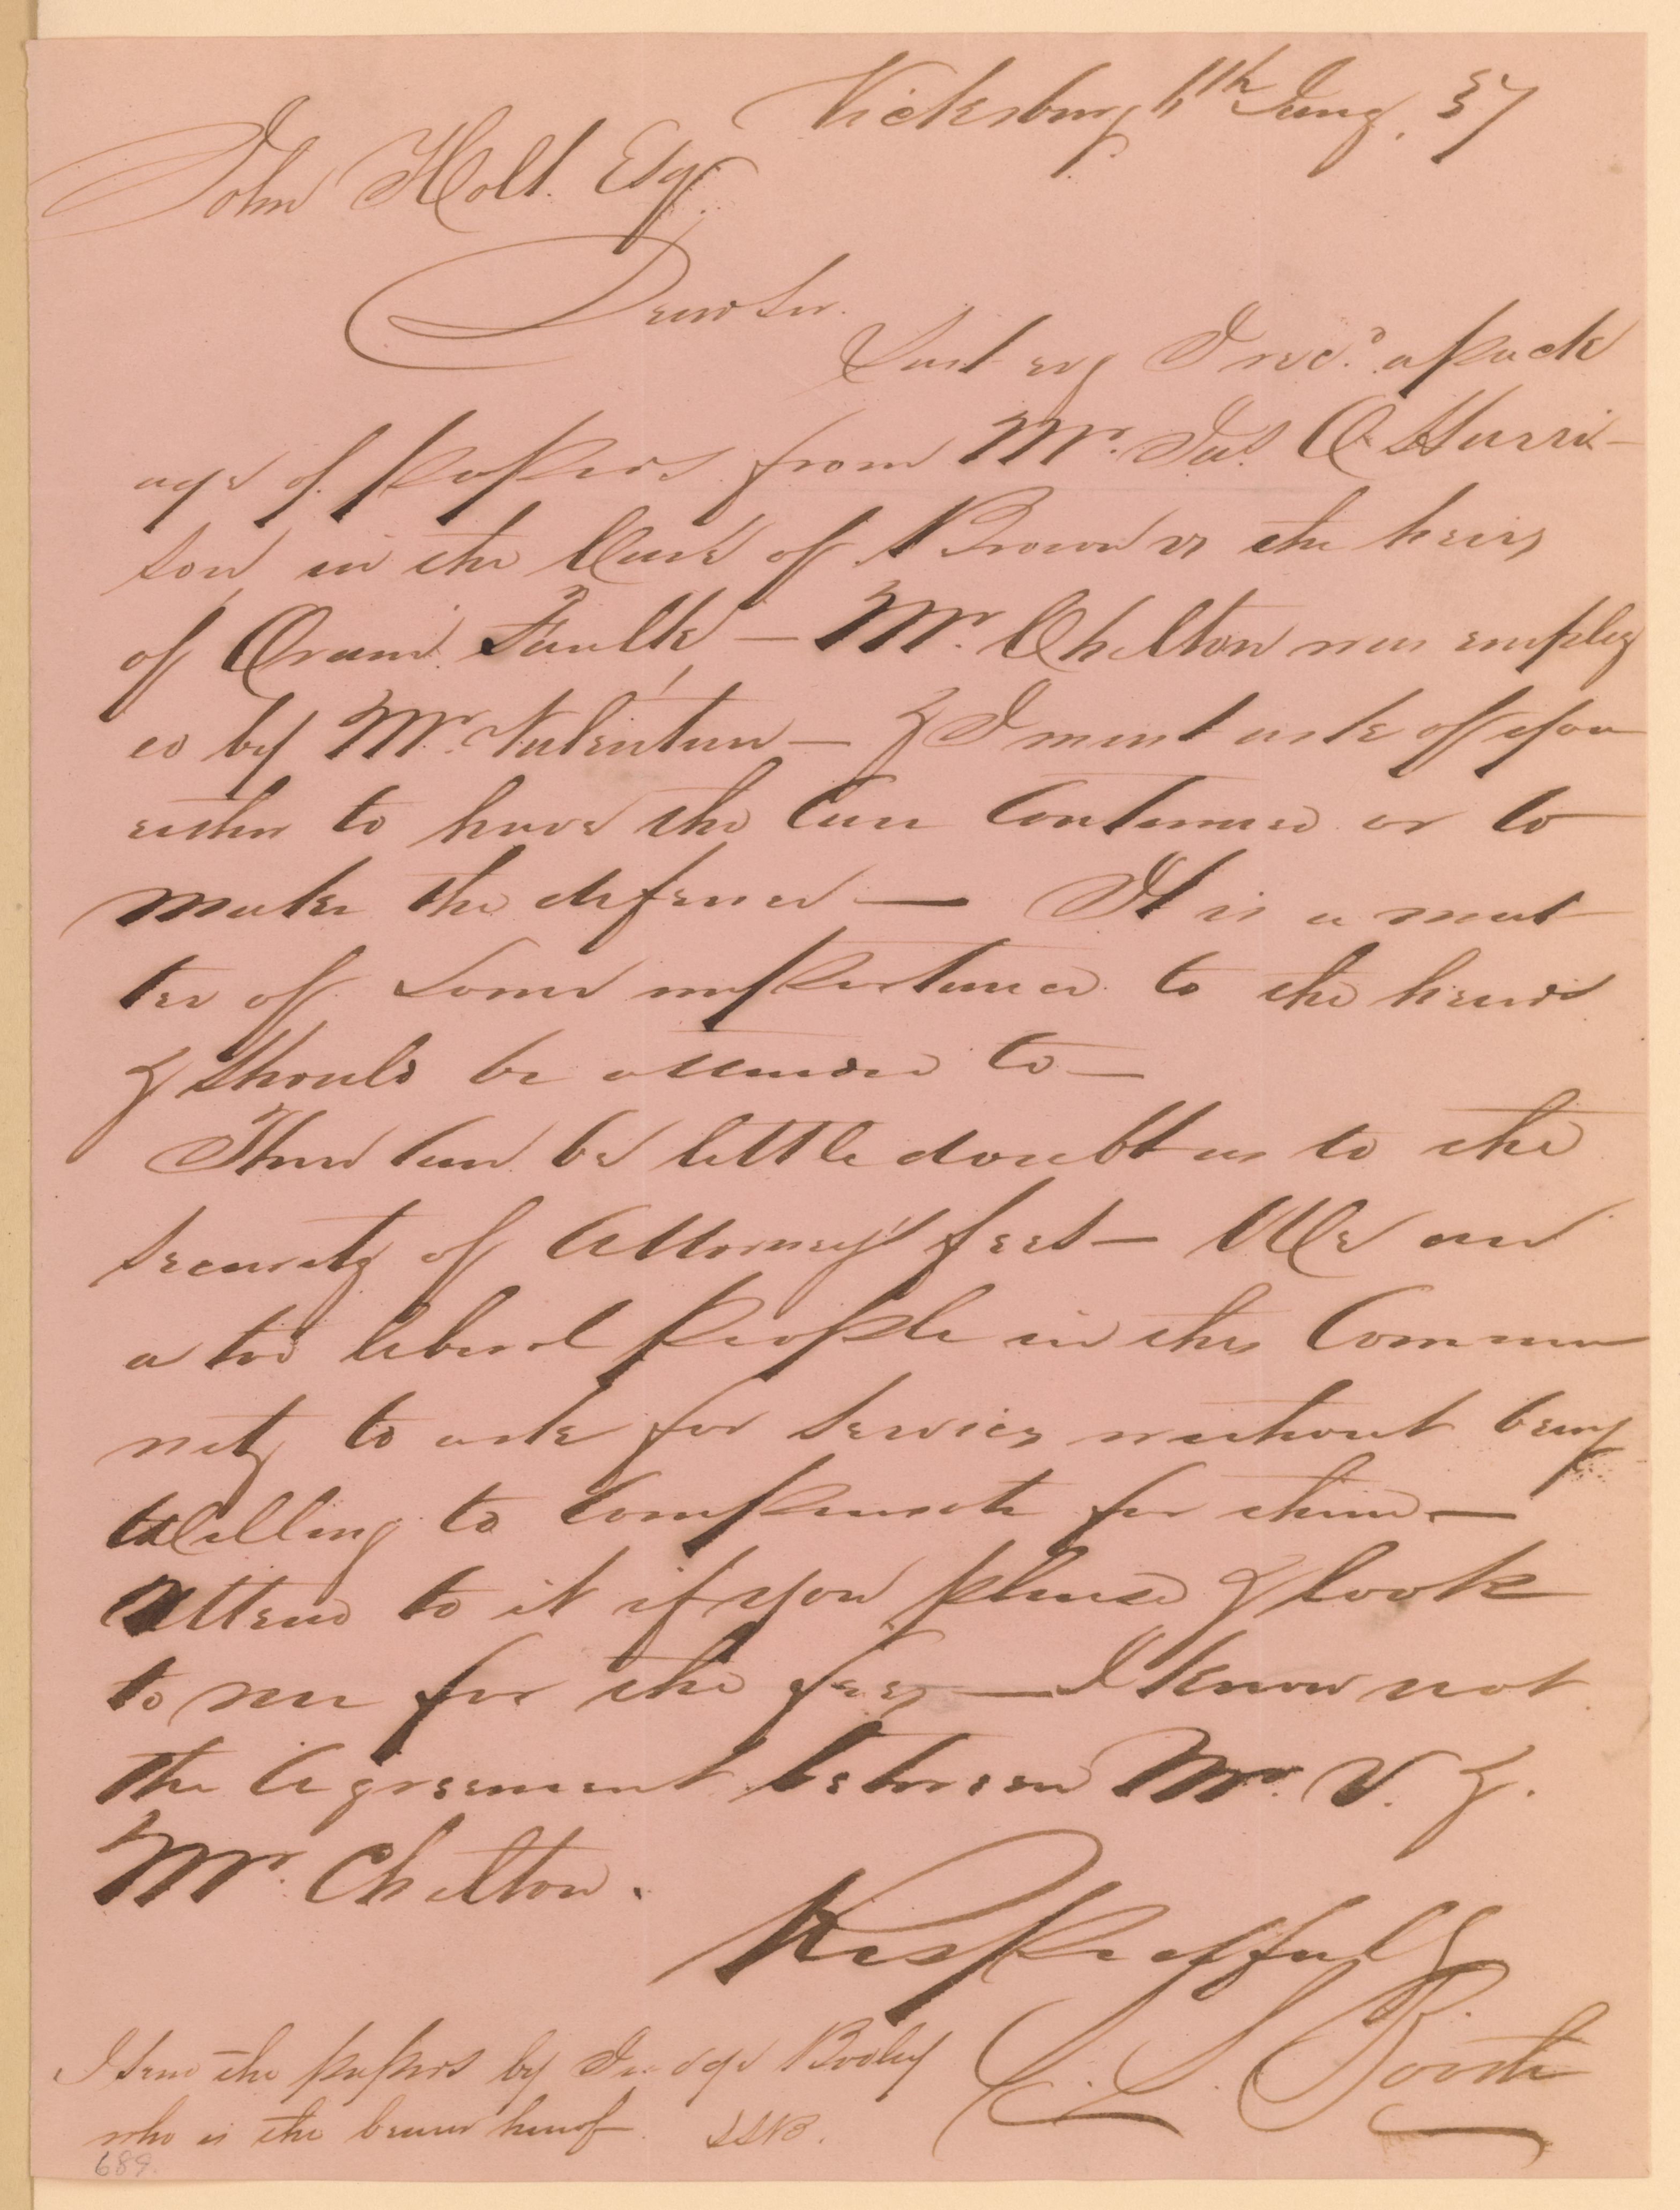 Vicksburg 11th Jany. 37
John Holt. Esq.
Dear Sir.
Last evg I recd. a pack
age of papers from Mr. Jas. O Harri-
son in the Case of Brown vs the heirs
of Oram. Faulk — Mr. Chilton was employ
ed by Mr. Valentine — & I must ask of you
either to have the Case Continued or to
make the defence — It is a mat
ter of some importance to the heirs
& should be attended to —
There can be little doubt as to the
security of Attorney's fees — We are
a too liberal people in this Commu
nity to ask for services without being
Willing to Compensate for them —
Attend to it if you please & look
to me for the fees — I know not
the Agreement between Mr. V. &.
Mr. Chilton.
Respectfully
L. S. Booth
I send the papers by Judge Bodley
who is the bearer hereof. LSB.
689.